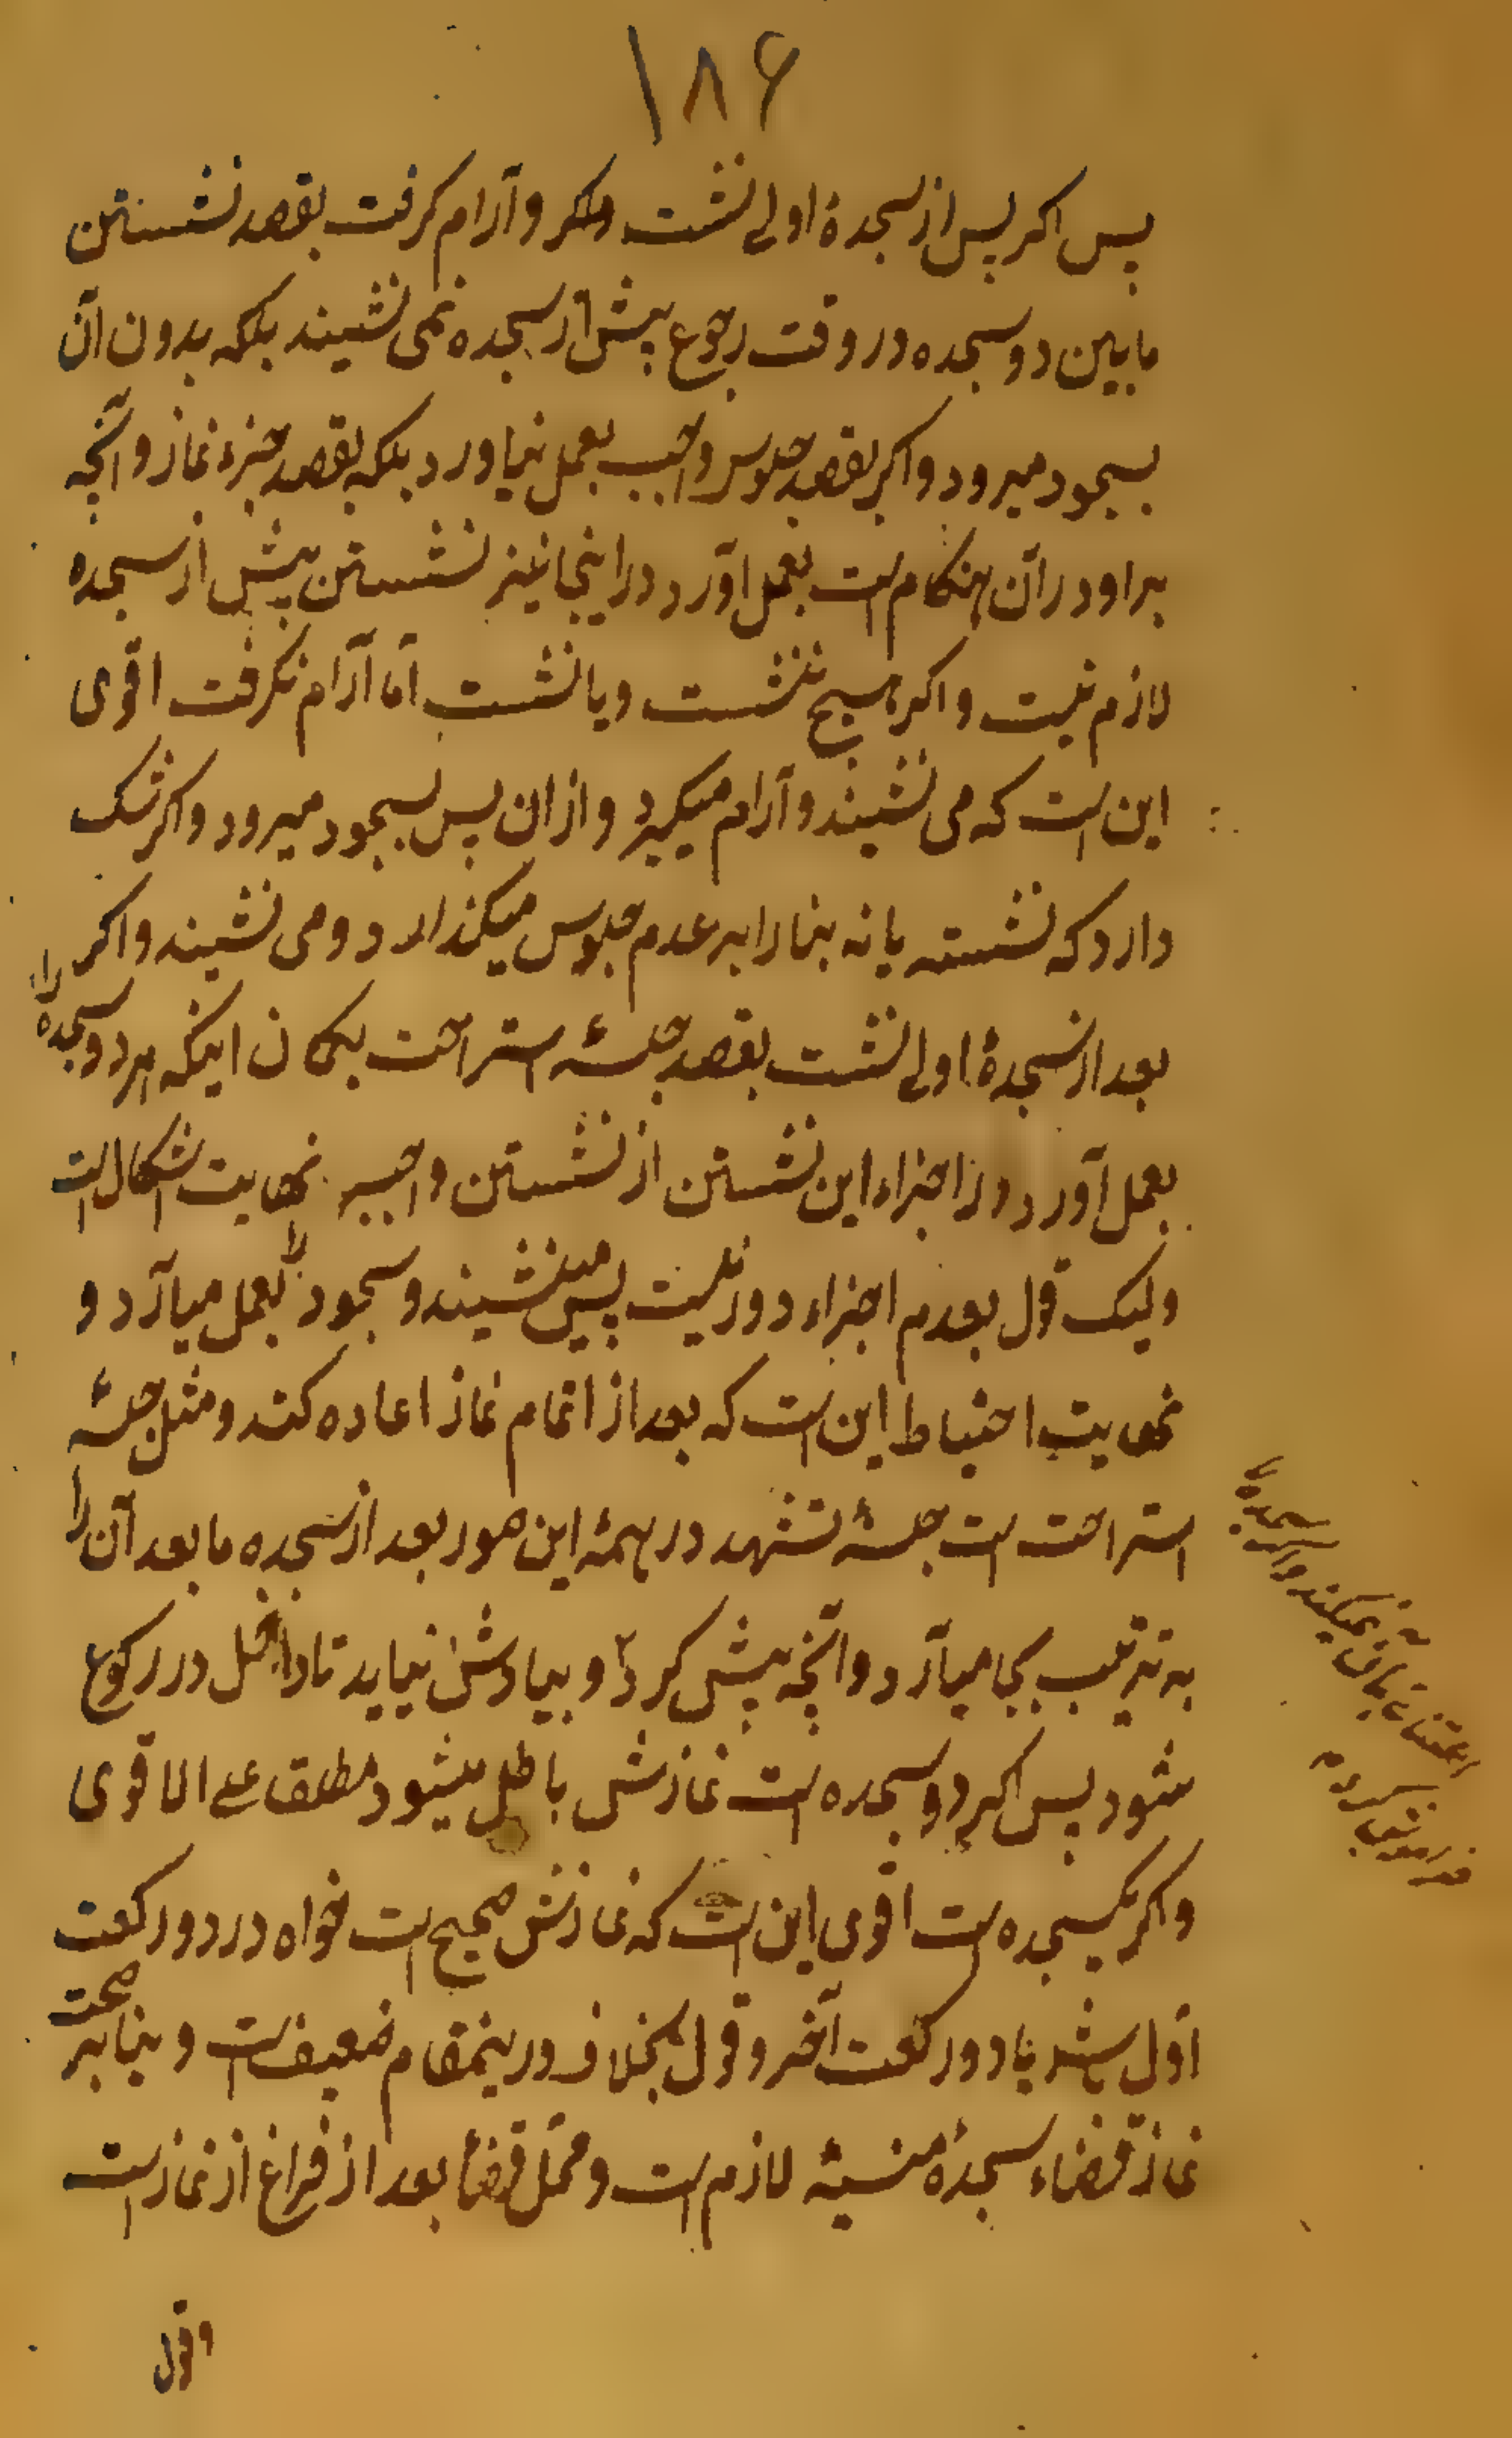 ۱۸۶
پس اکر پس از سجدۀ اولی نشست و آرام کرفت بقصد نشستن
مابین دو سجده در وقت رجوع پیش از سجده نمی نشیند بلکه بدون آن
بسجود میرود و اکر بقصد جلوس واجب بعمل نیاورد بلکه بقصد جزء نماز و آنچه
براو در آن هنکام است بعمل آورد در اینجا نیز نشستن پیش از سجده
لازم نیست و اکر هیچ ننشست و یا نشست اما آرام نکرفت اقوی
این است که می نشیند و آرام میکیرد و از ان پس بسجود میرود و اکر شک
دارد که نشسته یا نه بنا را بر عدم جلوس میکذارد و می نشیند و اکر
بعد از سجدۀ اولی نشست بقصد جلسۀ استراحت بکمان اینکه هر دو سجده را
بعمل آورد در اجزاء این نشستن از نشستن واجب نهایت اشکال است
ولیک قول بعدم اجزاء دور نیست پس مینشیند و سجود را بعمل میآرد و
نهایت احتیاط این است که بعد از اتمام نماز اعاده کند و مثل جلسۀ
استراحت است جلسۀ تشهد در همۀ این صور بعد از سجده ما بعد آن را
به ترتیب بجا میآرد و آنچه پیش کرده و بیادش نیاید تا داخل در رکوع
شود پس اکر دو سجده است نمازش باطل میشود مطلقا علی الاقوی
و اکر یکسجده است اقوی این است که نمازش صحیح است خواه در دو رکعت
اول باشد یا دو رکعت آخر و قول بخلاف در ینمقام ضعیف است و بنا بر صحت
نماز قضاء سجدۀ منسیۀ لازم است و محل قضا بعد از فراغ از نماز است